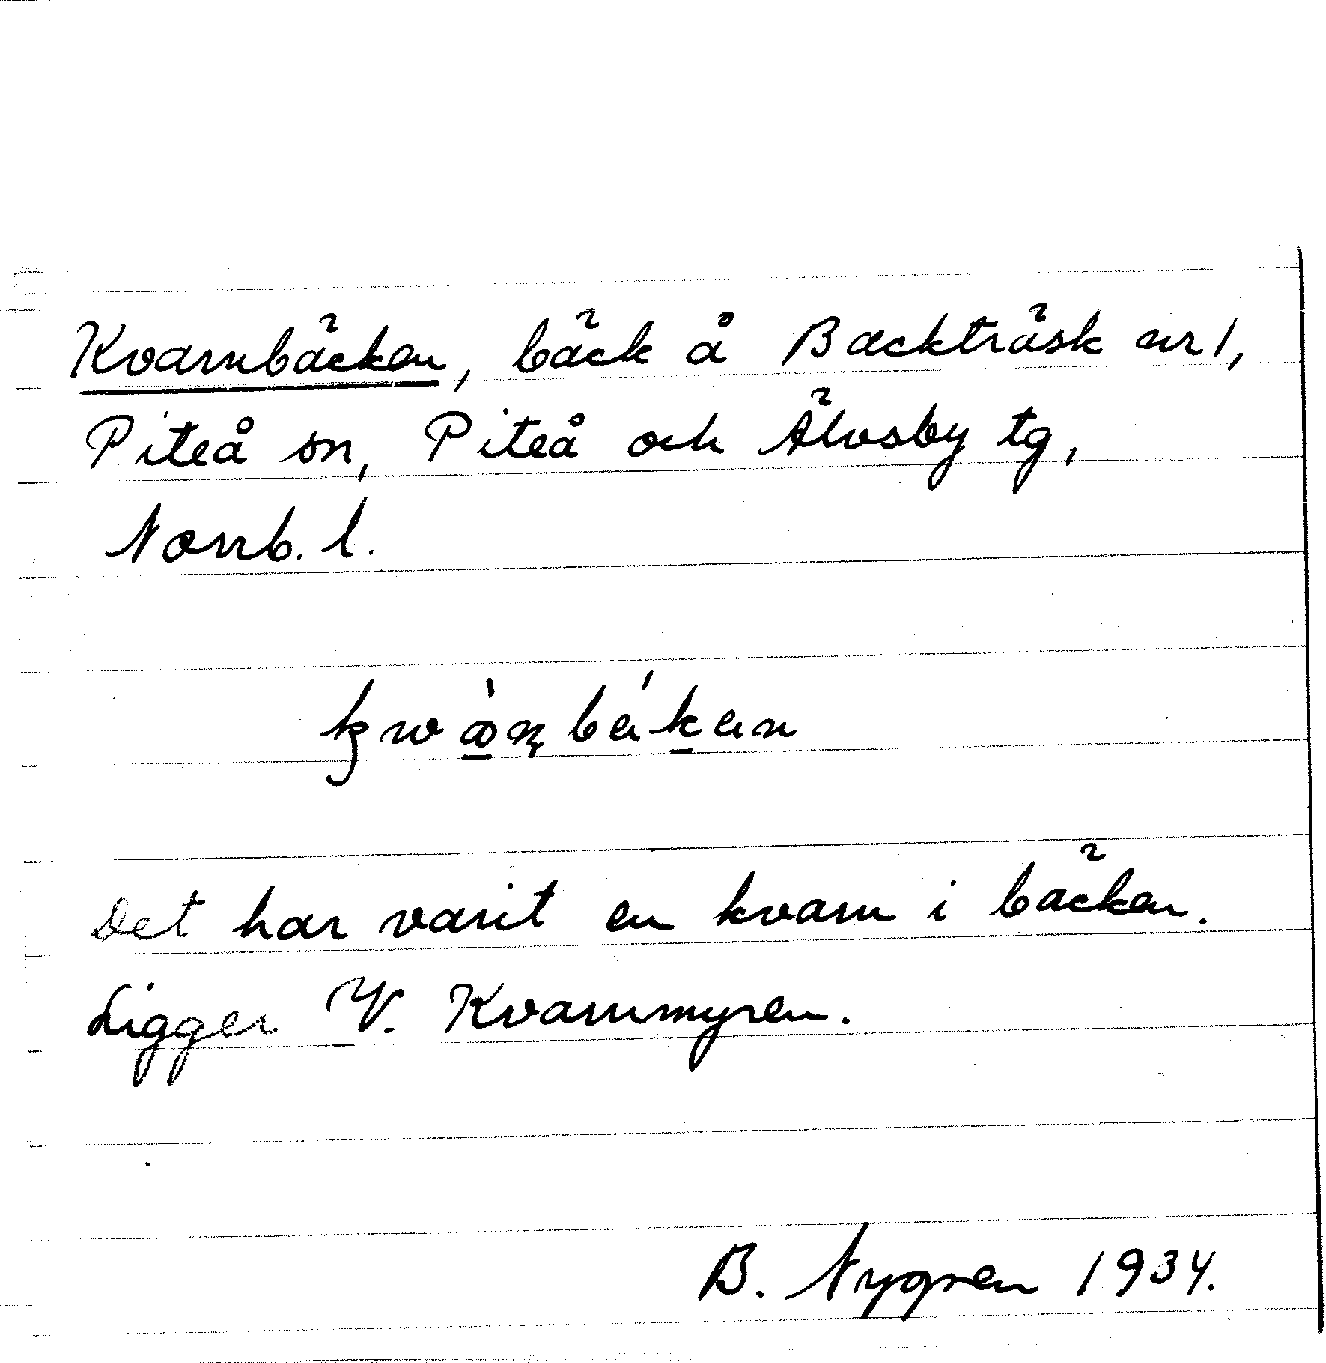 Kvarnbäcken, bäck å Backträsk nr 1,
Piteå sn, Piteå och Älvsby tg,
Norrb. l.
Det har varit en kvarn i bäcken.
Ligger V. Kvarnmyren.
B. Nygren 1934.